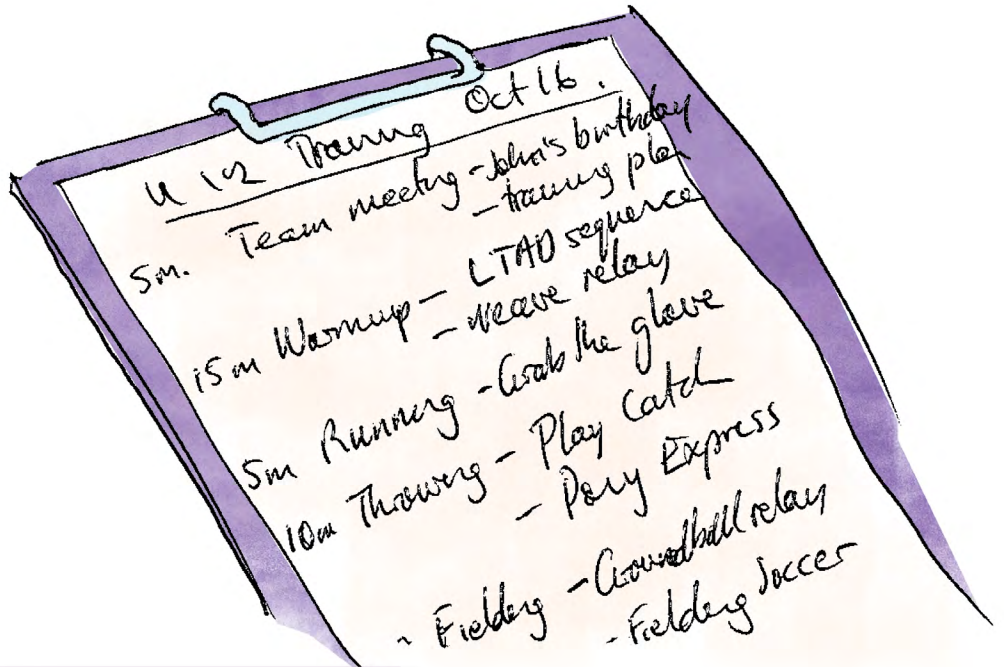 U 12 Training Oct 16.
5m. Team meeting - John's birthday
- training plan
15m Warmup - LTAD sequence
- weave relay
5m Running - Grab the glove
10m Throwing - Play Catch
- Pony Express
- Fielding - Groundball relay
- Fielding Soccer